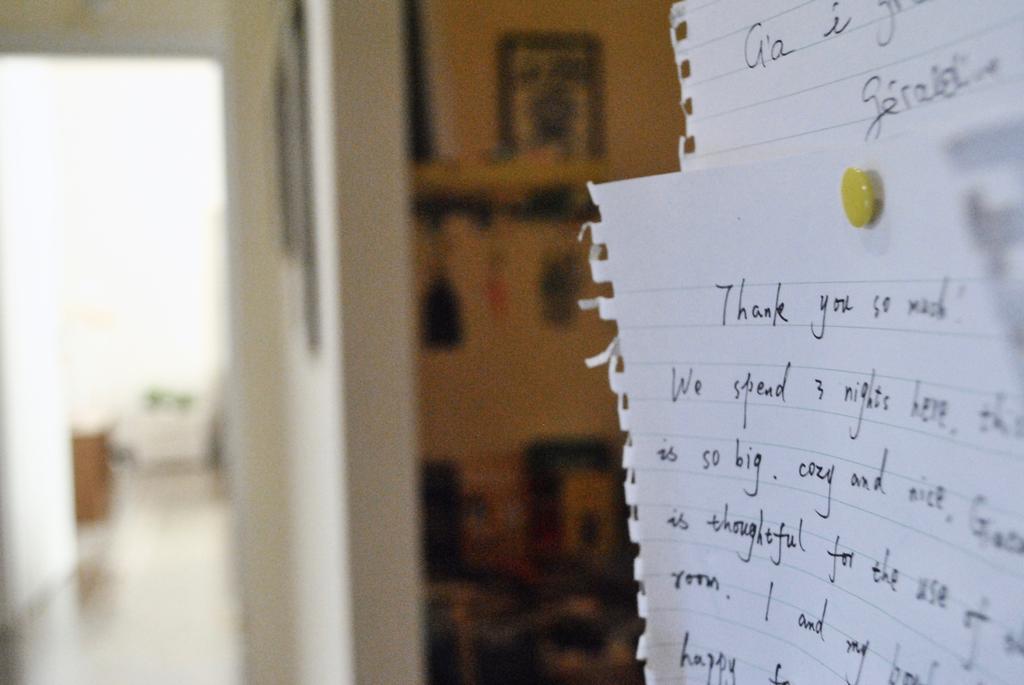 Gia è
Géraldine
Thank you so much!
We spend 3 nights here, this
is so big. cozy and nice.
is thoughtful for the use of
room. I and my
happy